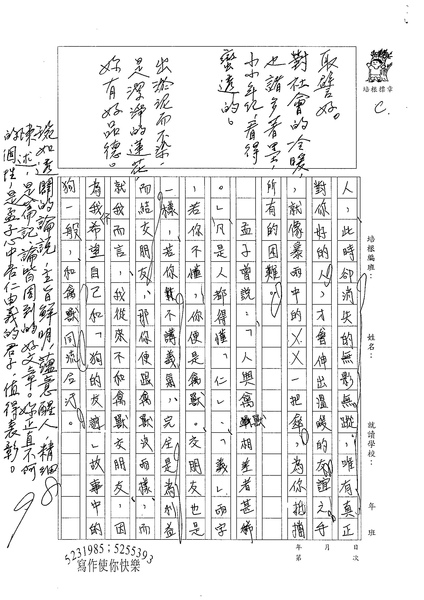 培根標章
C.
取譬好。
對社會的冷暖
也諸多著墨，
小小年紀，看得
蠻透的。
出淤泥而不染
是潔淨的蓮花
妳有好品德
培根編班：
姓名：
就讀學校：
年 班
次 日 月 年 第
人，此時卻消失的無影無蹤，唯有真正
對你好的人，才會伸出溫暖的友誼之手
，就像暴雨中的一把傘，為你抵擋
所有的困難。
孟子曾說：「人與禽獸相差者甚稀
。」凡是人都得懂「仁」、「義」兩字
，若你不懂，你便是禽獸。交朋友也是
一樣，若你不講義氣，完全是為利益
而結交朋友，那你便跟禽獸沒兩樣，而
就我而言，我從來不和禽獸交朋友，因
為我希望自己和「狗的友誼」故事中的
狗一般，和禽獸同流合污。
說如透闢的論說，主旨鮮明，蘊意醒人，精細
陳述，是篇記論皆周到的好文章。妳正直不阿
的個性，是孟子心中居仁由義的君子，值得表彰。
5231985；5255393
寫作使你快樂